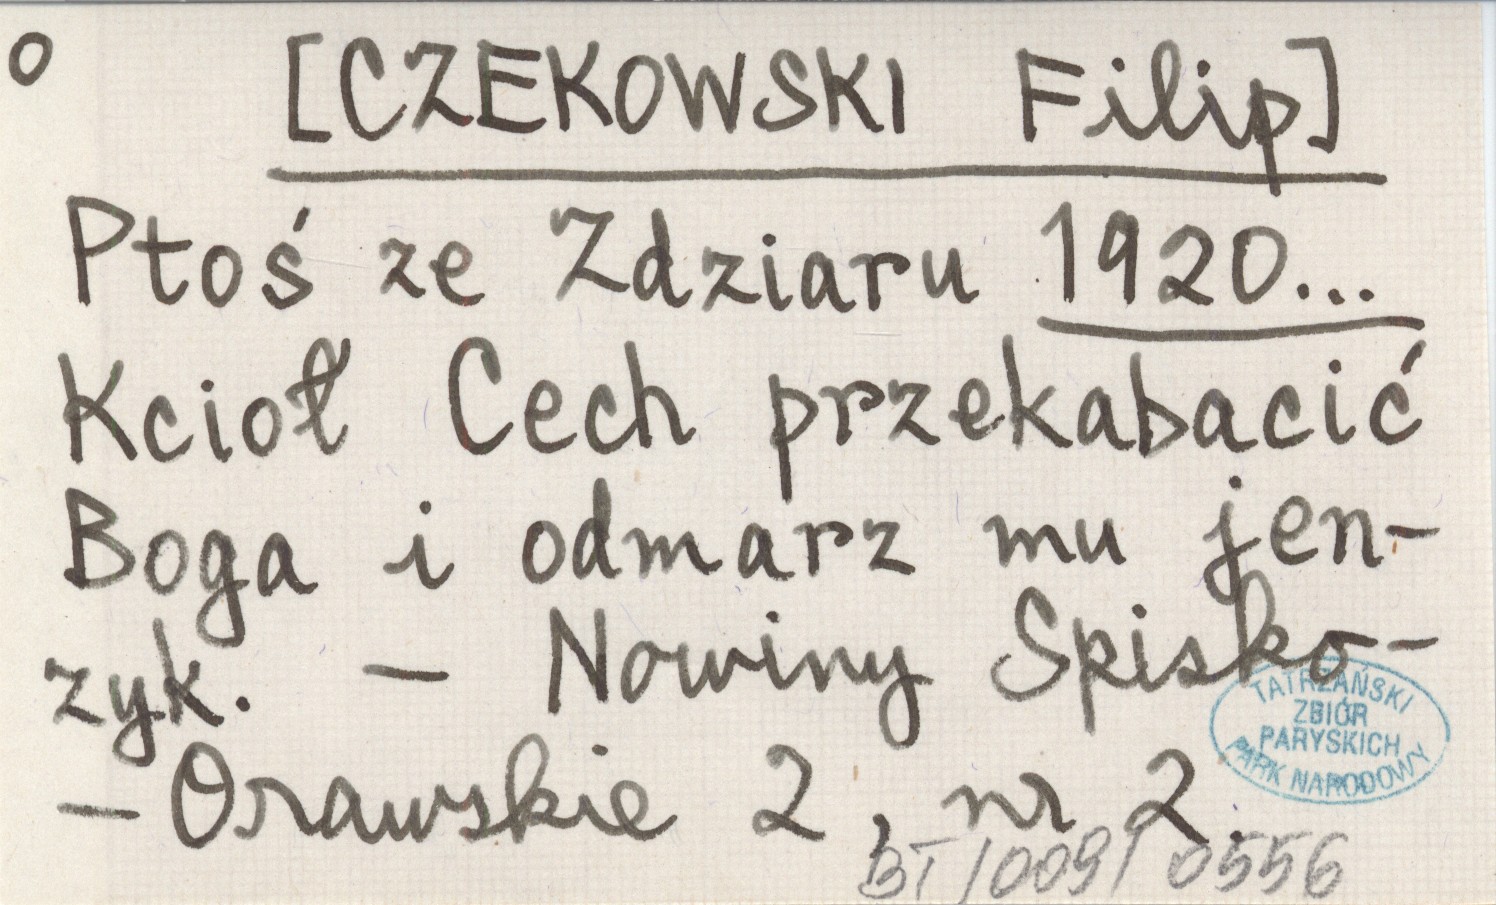 o
[CZEKOWSKI Filip]
Ptoś ze Zdziaru 1920...
Kcioł Cech przekabacić
Boga i odmarz mu jen-
zyk. — Nowiny Spisko-
TATRZAŃSKI
ZBIÓR
PARYSKICH
PARK NARODOWY
— Orawskie 2, nr 2.
BT/009/0556